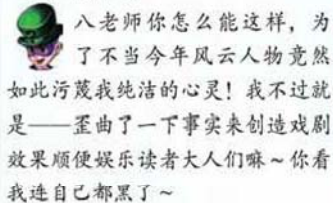 八老师你怎么能这样，为
了不当今年风云人物竟然
如此污蔑我纯洁的心灵！我不过就
是——歪曲了一下事实来创造戏剧
效果顺便娱乐读者大人们嘛～你看
我连自己都黑了～